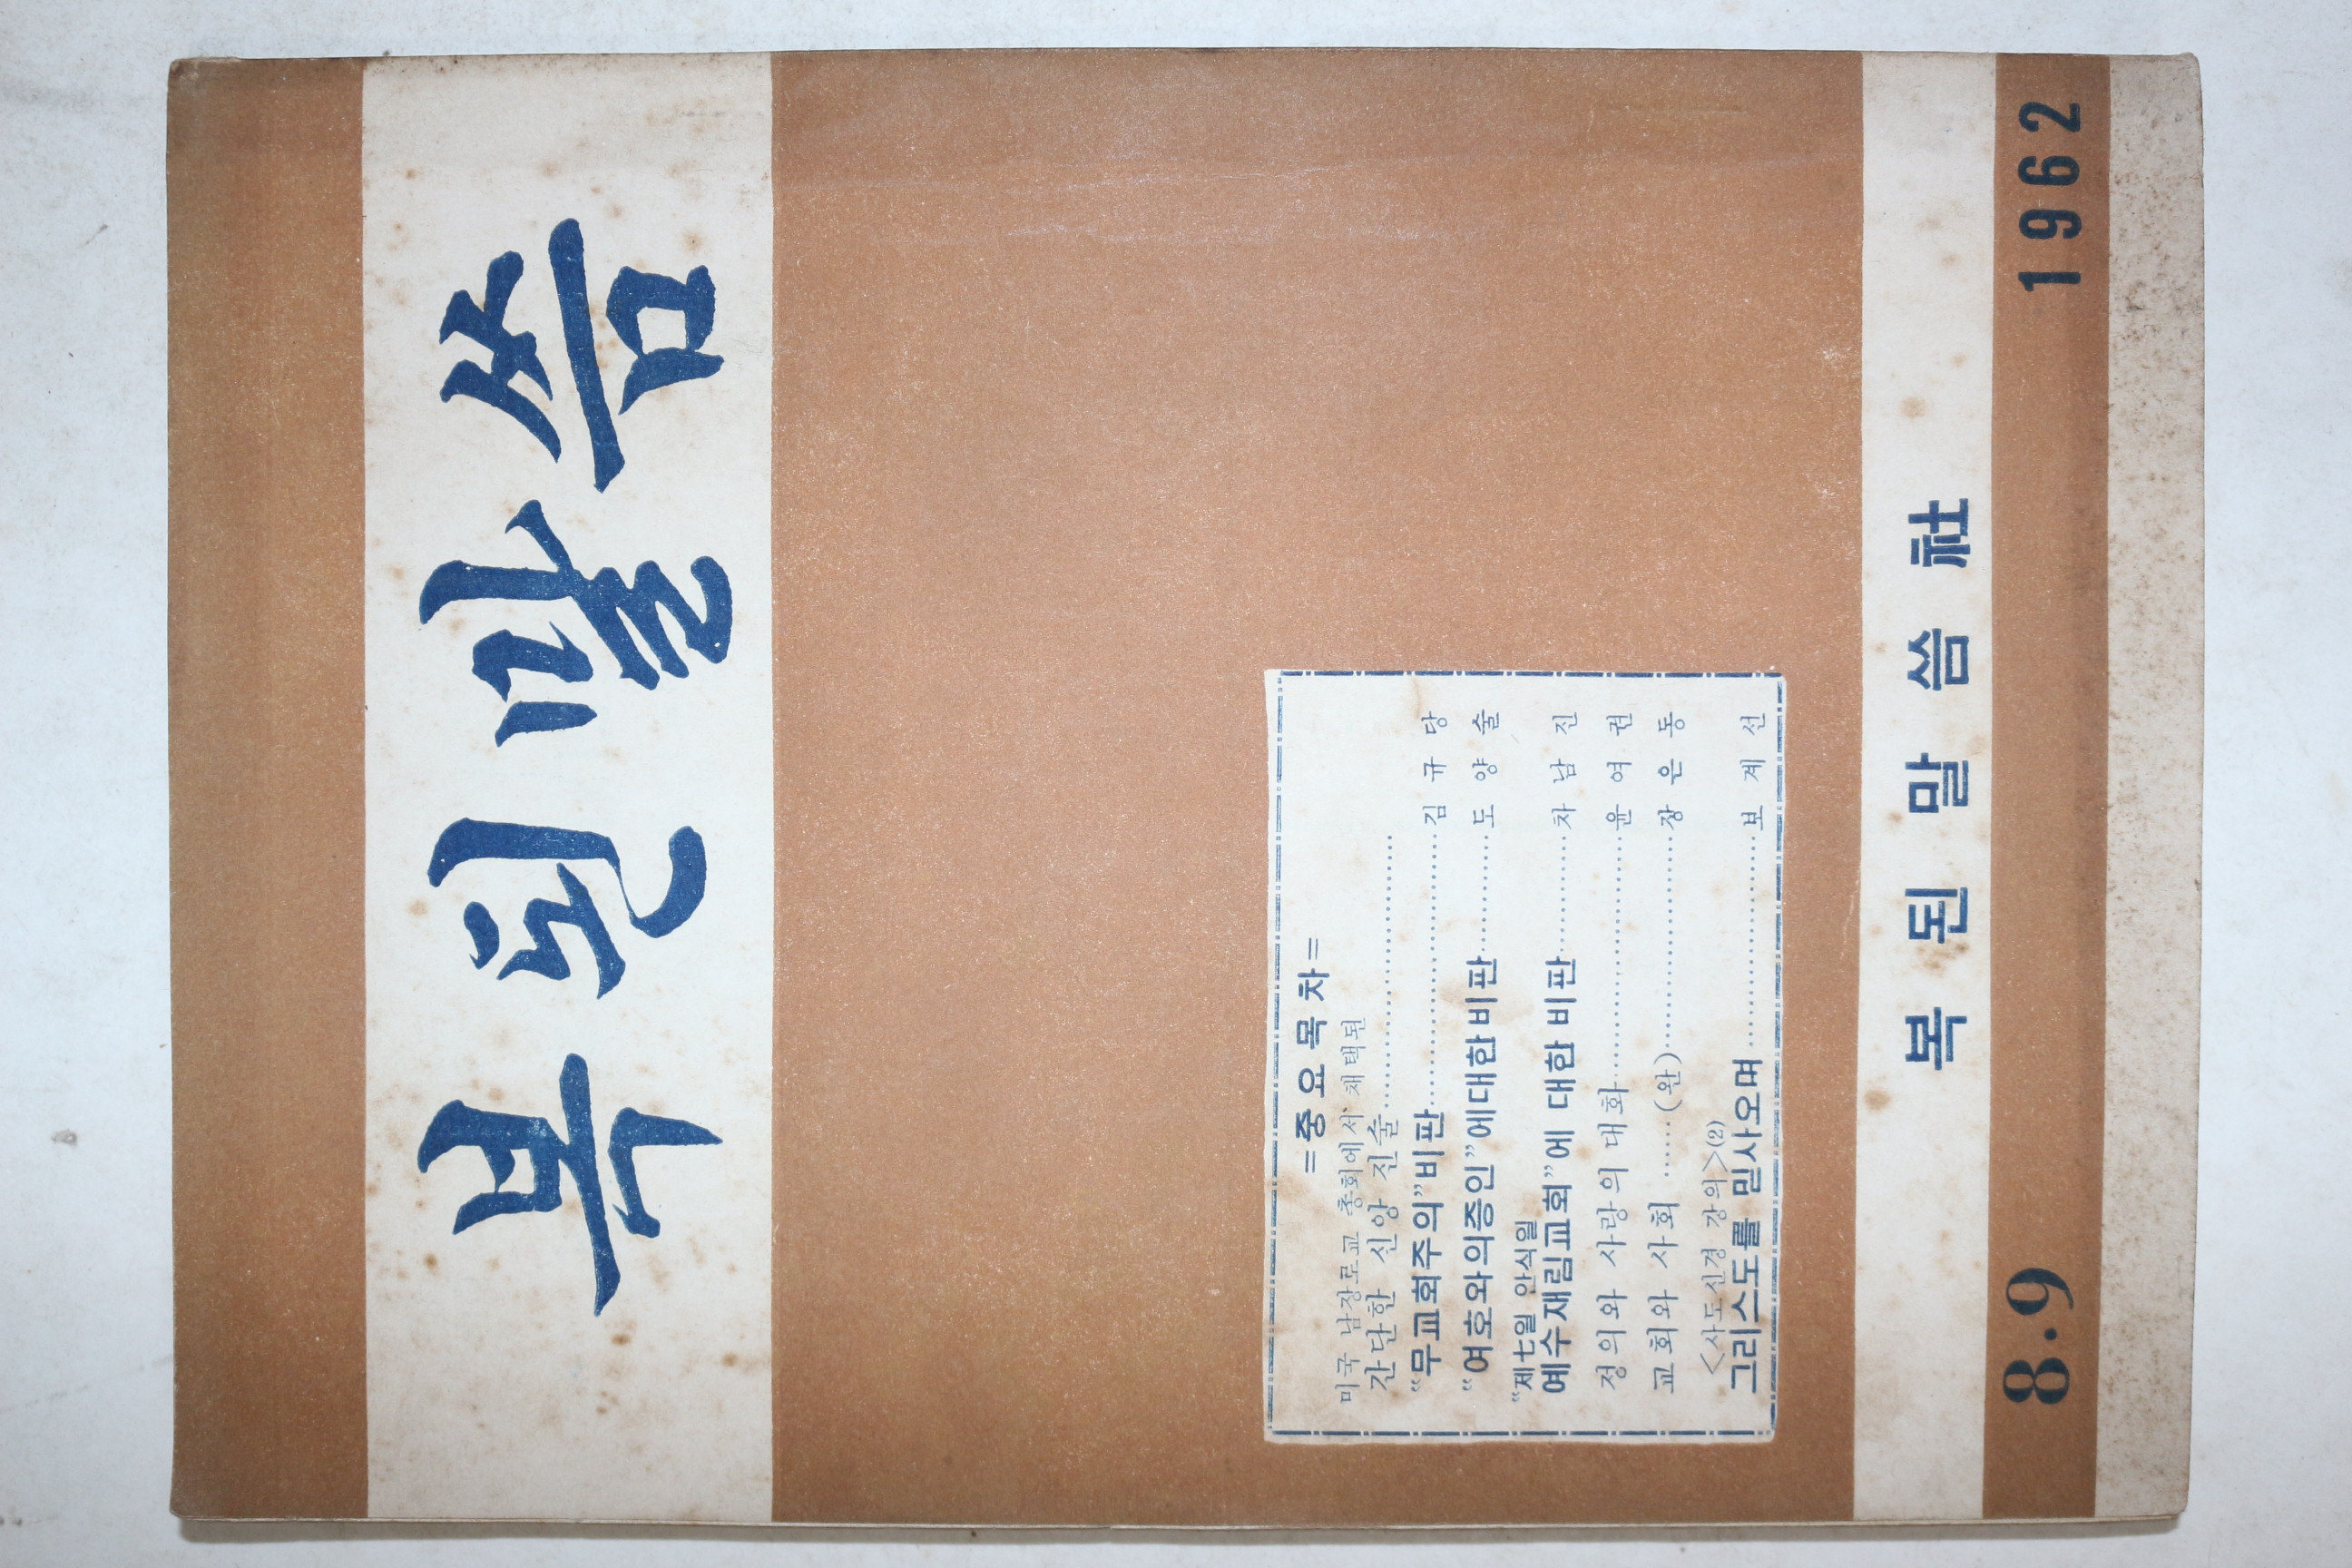 복된말씀
=중요목차=
미국 남장로교 총회에서 채택된
간단한 신앙 진술……………………
“무교회주의”비판……………………김규당
“여호와의증인”에대한비판…………도양술
“제七일 안식일
예수재림교회”에 대한 비판…………차남진
정의와 사랑의 대화……………………윤여권
교회와 사회 ……(완)…………………장은동
<사도신경 강의>(2)
그리스도를 믿사오며…………………보계선
복된말씀社
8.9 1962